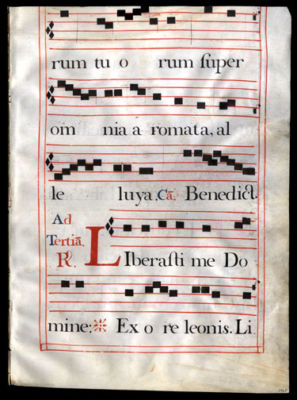 rum tu o rum ſuper
om nia a romata, al
le luya, Cã. Benedict.
Ad
Tertiã.
R. LIberaſti me Do
mine: Ex o re leonis. Li